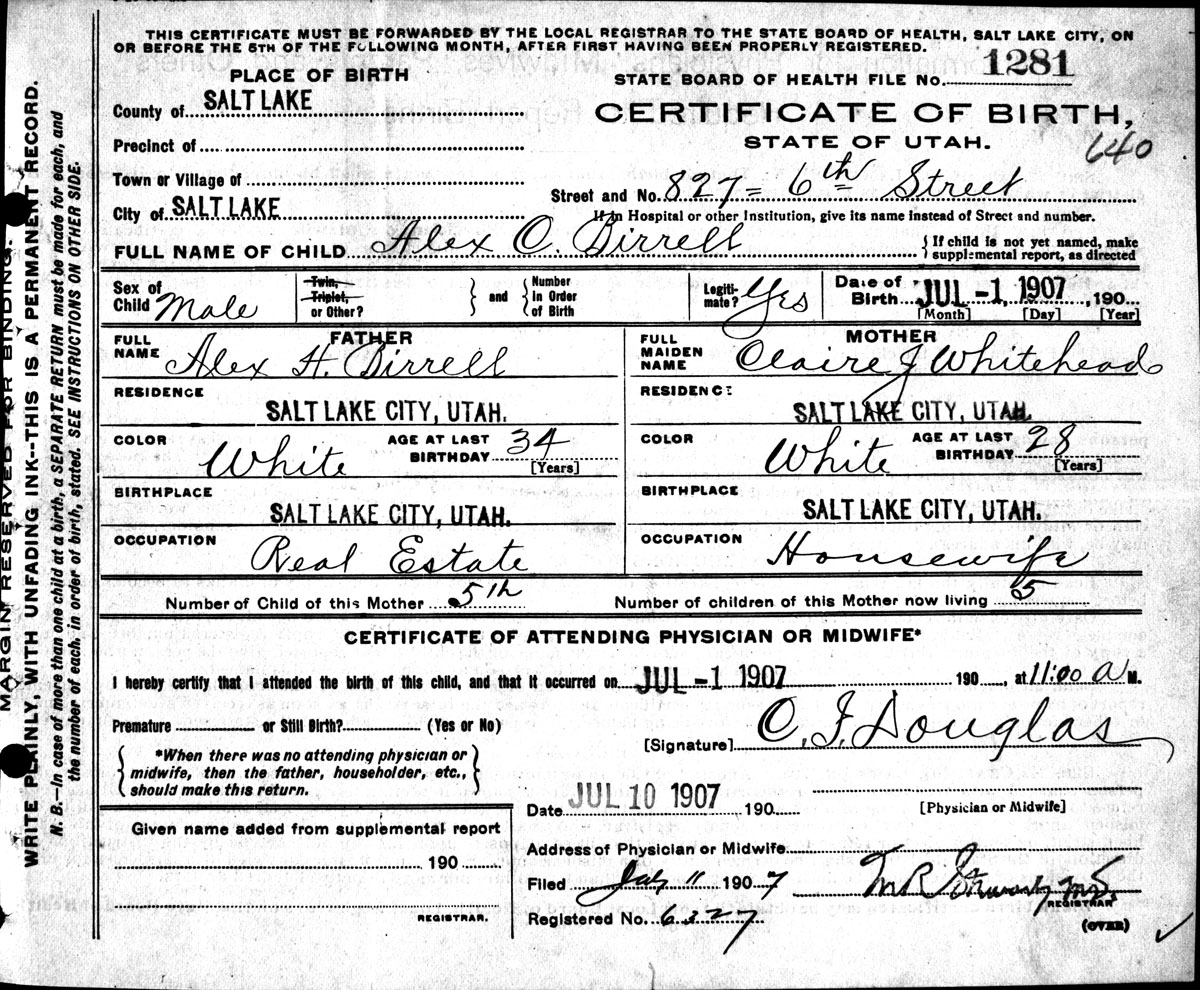 THIS CERTIFICATE MUST BE FORWARDED BY THE LOCAL REGISTRAR TO THE STATE BOARD OF HEALTH, SALT LAKE CITY, ON
OR BEFORE THE 5TH OF THE FOLLOWING MONTH, AFTER FIRST HAVING BEEN PROPERLY REGISTERED.
PLACE OF BIRTH
STATE BOARD OF HEALTH FILE No. 1281
County of SALT LAKE
CERTIFICATE OF BIRTH,
STATE OF UTAH.
640
Precinct of
Town or Village of
Street and No. 827 = 6th Street
City of SALT LAKE
If in Hospital or other Institution, give its name instead of Street and number.
FULL NAME OF CHILD Alex C. Birrell
If child is not yet named, make
supplemental report, as directed
Sex of
Child Male
Twin,
Triplet,
or Other?
and
Number
in Order
of Birth
Legiti-
mate? Yes
Date of
Birth JUL -1 1907, 190
[Month] [Day] [Year]
FATHER
FULL
NAME Alex H. Birrell
MOTHER
FULL
MAIDEN
NAME Claire J Whitehead
RESIDENCE
SALT LAKE CITY, UTAH.
RESIDENCE
SALT LAKE CITY, UTAH.
COLOR White
AGE AT LAST
BIRTHDAY 34
[Years]
COLOR White
AGE AT LAST
BIRTHDAY 28
[Years]
BIRTHPLACE
SALT LAKE CITY, UTAH.
BIRTHPLACE
SALT LAKE CITY, UTAH.
OCCUPATION
Real Estate
OCCUPATION
Housewife
Number of Child of this Mother 5th
Number of children of this Mother now living 5
CERTIFICATE OF ATTENDING PHYSICIAN OR MIDWIFE*
I hereby certify that I attended the birth of this child, and that it occurred on JUL -1 1907 190, at 11:00 a M.
Premature or Still Birth? (Yes or No)
[Signature] C. F. Douglas
*When there was no attending physician or
midwife, then the father, householder, etc.,
should make this return.
Date JUL 10 1907 190
[Physician or Midwife]
Given name added from supplemental report
190
REGISTRAR.
Address of Physician or Midwife
Filed July 11 1907
REGISTRAR
Registered No. 6327
(OVER)
MARGIN RESERVED FOR BINDING.
WRITE PLAINLY, WITH UNFADING INK--THIS IS A PERMANENT RECORD.
N. B.—In case of more than one child at a birth, a SEPARATE RETURN must be made for each, and
the number of each, in order of birth, stated. SEE INSTRUCTIONS ON OTHER SIDE.